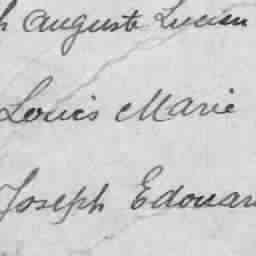 h Auguste Lucien
Louis Marie
Joseph Edouar